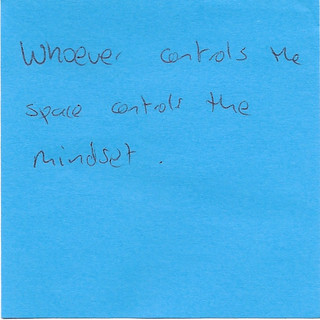 Whoever controls the
space controls the
mindset.